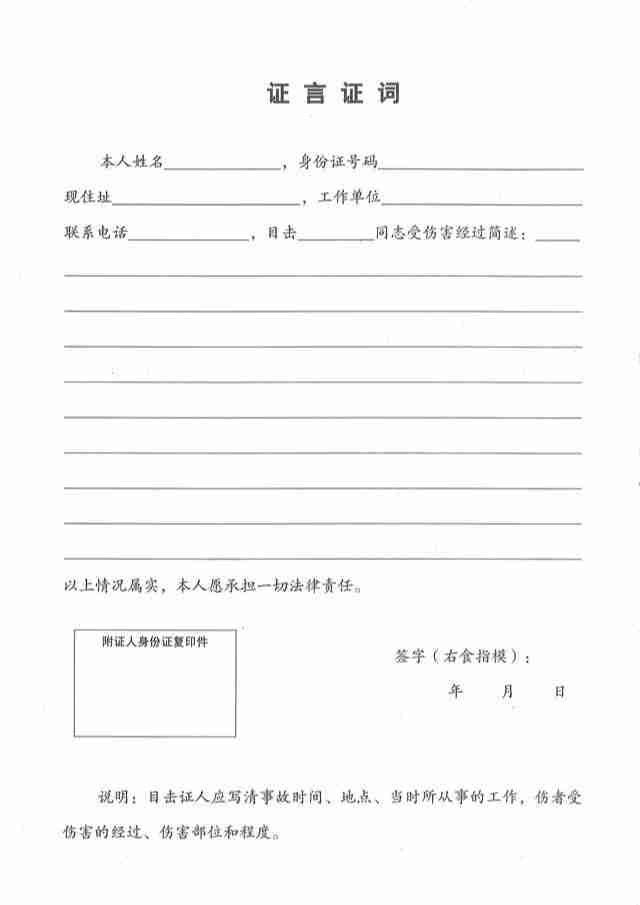 证言证词
本人姓名____________，身份证号码____________________
现住址____________________，工作单位____________________
联系电话____________，目击________同志受伤害经过简述：____
以上情况属实，本人愿承担一切法律责任。
附证人身份证复印件
签字（右食指模）：
年 月 日
说明：目击证人应写清事故时间、地点、当时所从事的工作，伤者受
伤害的经过、伤害部位和程度。